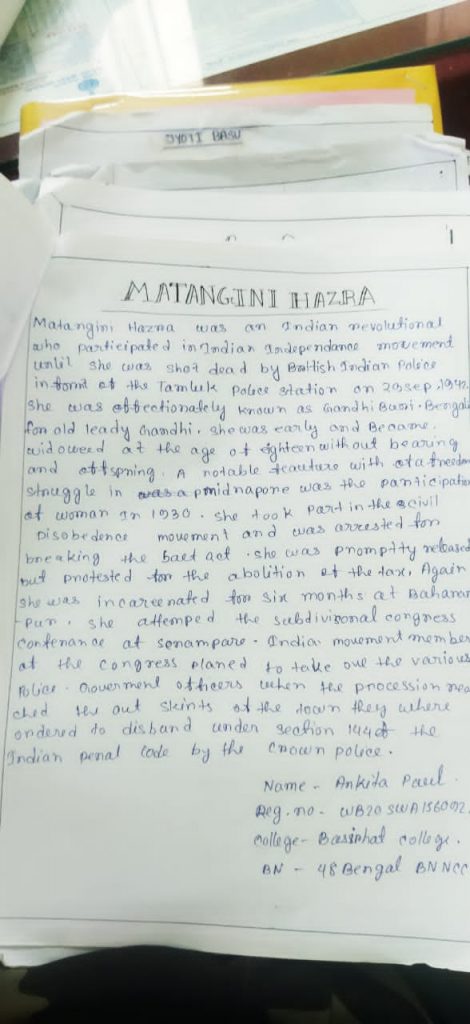 JYOTI BASU
MATANGINI HAZRA
Matangini Hazra was an Indian revolutional
who participated in Indian Independance movement
until she was shot dead by Brittish Indian Police
in front of the Tamluk Police station on 29 sep, 1942.
She was affectionately known as Gandhi Buri. Bengali
for old leady Gandhi. she was early and Became
widoweed at the age of eighteen without bearing
and offspring. A notable feauture with of a freedom
struggle in midnapore was the participation
of woman In 1930. She took part in the civil
Disobedence movement and was arrested for
breaking the saet act. she was promptty released
but protested for the abolition of the tax, Again
she was incareenated for six months at Baharam
-Pur. she attemped the subdivisonal congress
confenance at serampare. India movement member
of the congress planed to take ove the various
Police. Government officers when the procession rea
ched the out skints of the town they where
ordered to disband under section 144 of the
Indian penal code by the crown police.
Name - Ankita Paul.
Reg. no - WB20 SWA156092.
College - Basirhat College.
BN - 48 Bengal BN NCC